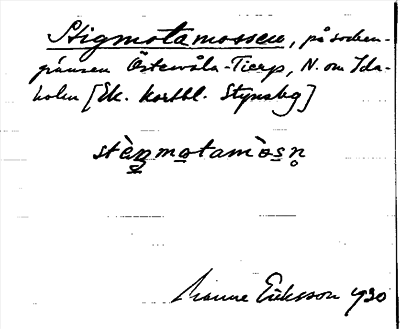 Stigmotamossen, på socken-
gränsen Östervåla-Tierp, N. om Ida-
holm [Ek. kartbl. Stynsbg]
stèŋmotamòsn̥
Manne Eriksson 1930